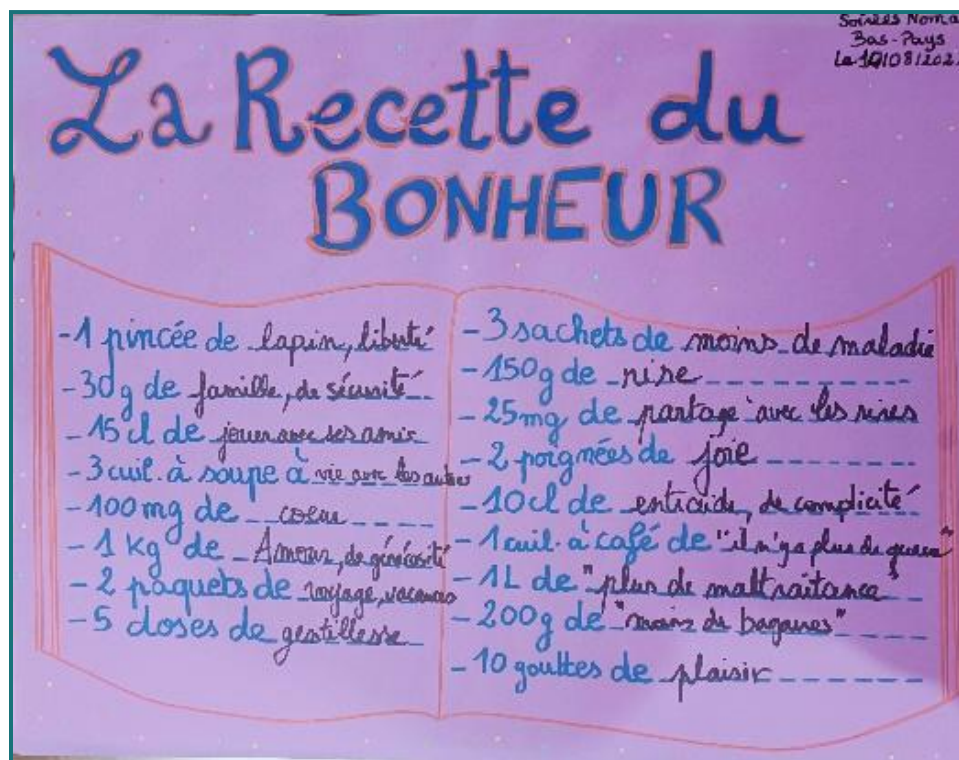 Soirées Noma
Bas-Pays
La Recette du
BONHEUR
-1 pincée de lapin, liberté
-30g de famille, de sécurité
-15 cl de jouer avec ses amis
-3 cuil. à soupe à vie avec les autres
-100mg de coeur
-1 kg de Amour, de générosité
-2 paquets de voyage, vacances
-5 doses de gentillesse
-3 sachets de moins de maladie
-150g de rire
-25mg de partage avec les rires
-2 poignées de joie
-10cl de entraide, de complicité
-1 cuil. à café de "il n'y a plus de guerre"
-1L de "plus de maltraitance"
-200g de "moins de bagarres"
-10 gouttes de plaisir